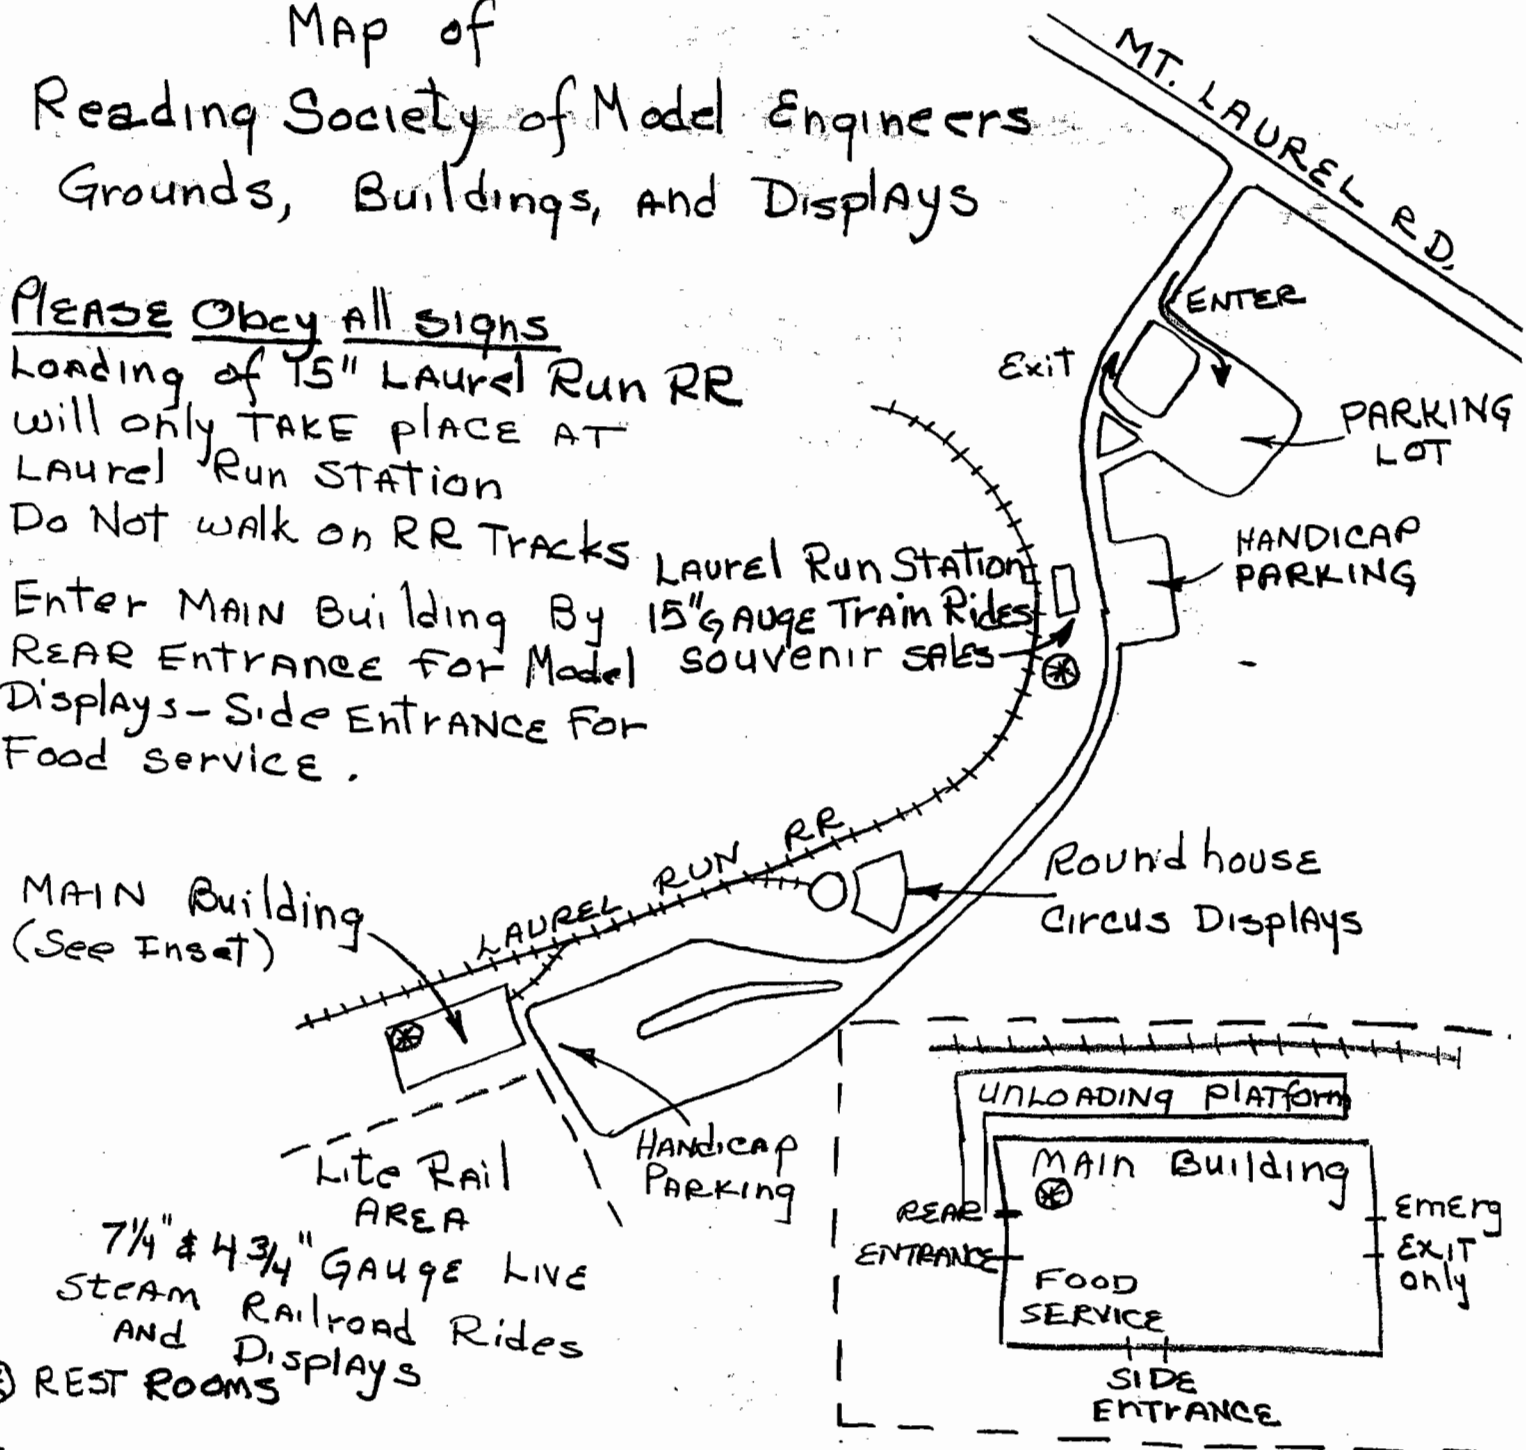 MAP of
Reading Society of Model Engineers
Grounds, Buildings, And Displays
MT. LAUREL RD.
PLEASE Obey All signs
Loading of 15" Laurel Run RR
will only TAKE place AT
Laurel Run Station
Do Not walk on RR Tracks
Enter MAIN Building By
REAR Entrance for Model
Displays - Side Entrance For
Food service.
ENTER
Exit
PARKING
LOT
HANDICAP
PARKING
Laurel Run Station
15" GAUGE Train Rides
souvenir sales
LAUREL RUN RR
Roundhouse
Circus Displays
MAIN Building
(See Inset)
Handicap
Parking
Lite Rail
AREA
7¼" & 4¾" GAUGE LIVE
Steam Railroad Rides
And Displays
REST Rooms
UNLOADING Platform
MAIN Building
REAR
ENTRANCE
FOOD
SERVICE
Emerg
EXIT
only
SIDE
ENTRANCE